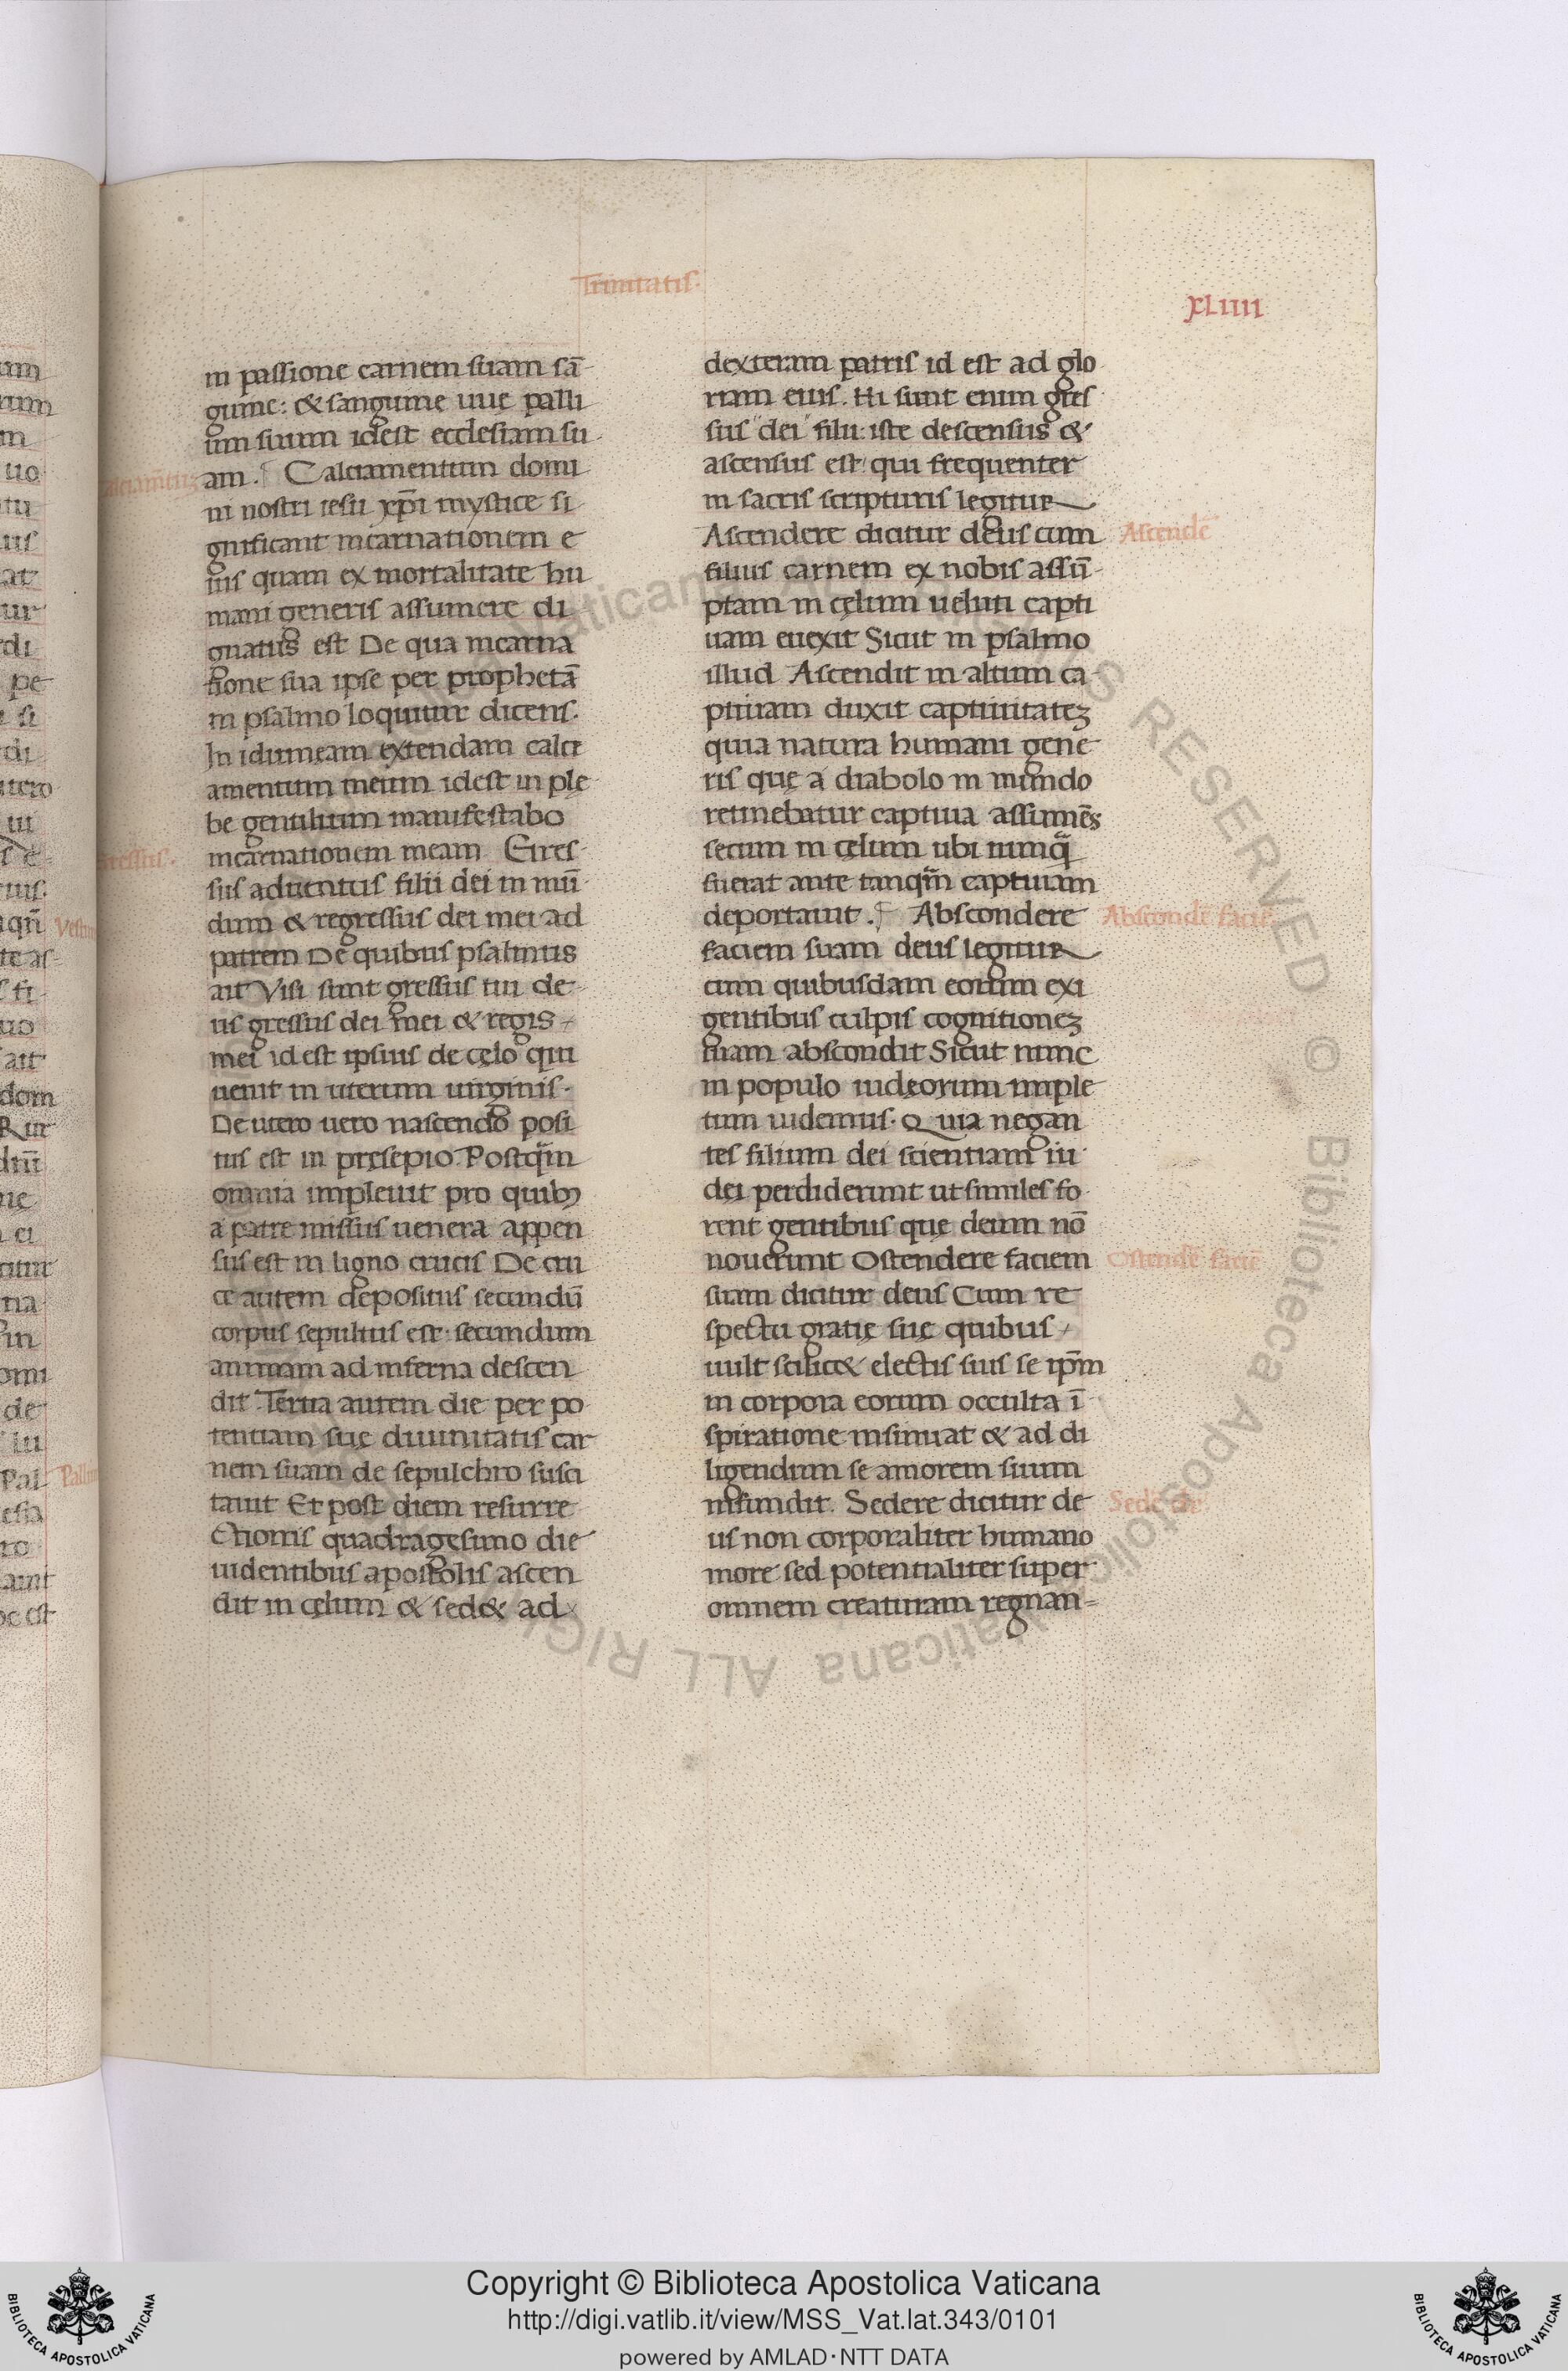 Trinitatis.
XLIIII
in passione carnem suam sā
guine: & sanguine uuę palli
um suum idest ecclesiam su
am. Calciamentum domi
ni nostri iesu xp̄i mystice si
gnificant incarnationem e
ius quam ex mortalitate hu
mani generis assumere di
gnatus est De qua incarna
tione sua ipse per prophetā
in psalmo loquitur dicens.
In idumeam extendam calci
amentum meum idest in ple
be gentilium manifestabo
incarnationem meam Gres
sus aduentus filii dei in mū
dum & regressus dei mei ad
patrem De quibus psalmus
ait Visi sunt gressus tui de
us gressus dei mei & regis
mei id est ipsius de cęlo qui
uenit in uterum uirginis.
De utero uero nascendo posi
tus est in pręsepio. Postq̄m
omnia impleuit pro quibꝫ
a patre missus uenera appen
sus est in ligno crucis De cru
ce autem depositus secundū
corpus sepultus est: secundum
animam ad inferna descen
dit Tertia autem die per po
tentiam suę diuinitatis car
nem suam de sepulchro susci
tauit Et post diem resurre
ctionis quadragesimo die
uidentibus apostolis ascen
dit in cęlum & sed& ad
dexteram patris id est ad glo
riam eius. Hi sunt enim gres
sus dei filii: iste descensus &
ascensus est qui frequenter
in sacris scripturis legitur
Ascendere dicitur deus cum
filius carnem ex nobis assū
ptam in cęlum ueluti capti
uam euexit Sicut in psalmo
illud Ascendit in altum ca
ptiuam duxit captiuitateꝫ
quia natura humani gene
ris quę a diabolo in mundo
retinebatur captiua assumēs
secum in cęlum ubi nunq̄
fuerat ante tanq̄m captiuam
deportauit. Abscondere
faciem suam deus legitur
cum quibusdam eorum exi
gentibus culpis cognitioneꝫ
suam abscondit Sicut nunc
in populo iudęorum imple
tum uidemus. Quia negan
tes filium dei scientiam iu
dęi perdiderunt ut similes fo
rent gentibus quę deum nō
nouerunt Ostendere faciem
suam dicitur deus Cum re
spectu gratię suę quibus
uult scilic& electis suis se ip̄m
in corpora eorum occulta ī
spiratione insinuat & ad di
ligendum se amorem suum
infundit. Sedere dicitur de
us non corporaliter humano
more sed potentialiter super
omnem creaturam regnan=
Ascendē
Abscondē faciē
Ostendē faciē
Copyright © Biblioteca Apostolica Vaticana
http://digi.vatlib.it/view/MSS_Vat.lat.343/0101
powered by AMLAD·NTT DATA
BIBLIOTECA APOSTOLICA VATICANA
BIBLIOTECA APOSTOLICA VATICANA